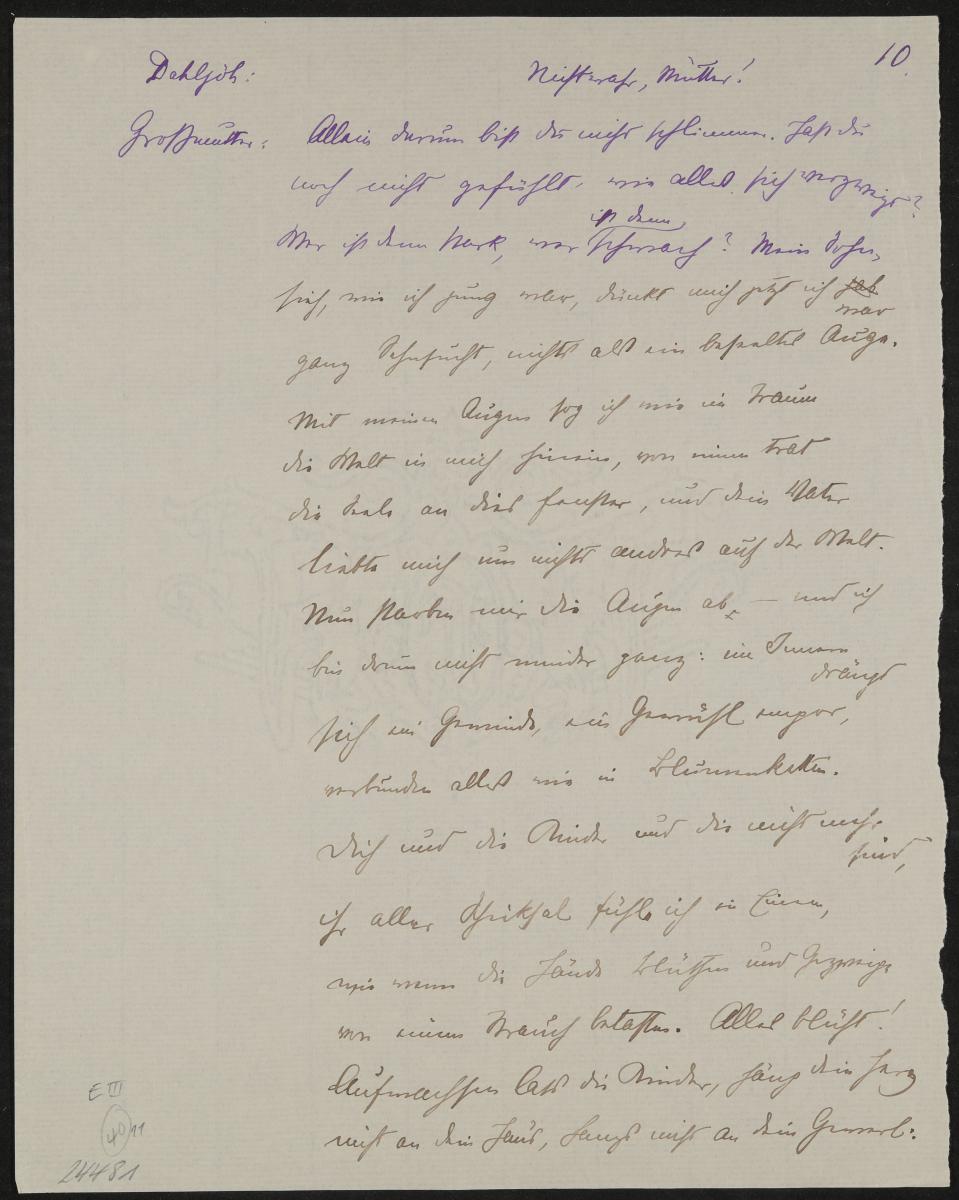 10.
Dahljöh: Nicht wahr, Mutter!
Großmutter: Allein darum bist du nicht schlimmer. Hast du
noch nicht gefühlt, wie alles sich verzweigt?
ist denn
Wer ist denn stark, wer schwach? Mein Sohn,
sieh, wie ich jung war, dünkt mich jetzt ich
war
ganz Sehnsucht, nichts als ein beseeltes Auge.
Mit meinen Augen sog ich wie im Traum
die Welt in mich hinein, von innen trat
die Seele an dies Fenster, und dein Vater
liebte mich um nichts andres auf der Welt.
Nun starben mir die Augen ab, – und ich
bin drum nicht minder ganz: im Innern
drängt
sich ein Gewinde, ein Gewühl empor,
verbunden alles wie in Blumenketten.
Dich und die Kinder und die nicht mehr
sind,
ihr aller Schicksal fühle ich in Einem,
wie wenn die Hände Blüthen und Gezweige
von einem Strauch betasten. Alles blüht!
Aufwachsen lass die Kinder, häng dein Herz
nicht an dein Haus, häng's nicht an dein Gewerb:
E III
40 11
24481